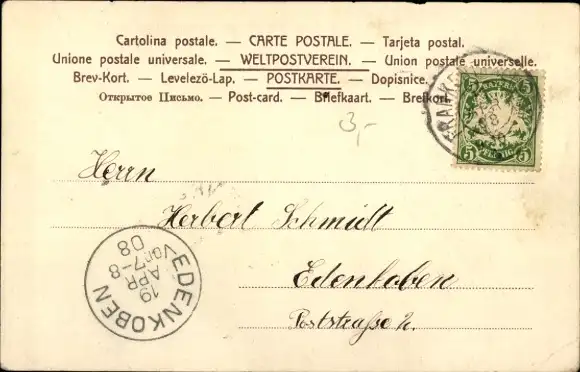 Cartolina postale. — CARTE POSTALE. — Tarjeta postal.
Unione postale universale. — WELTPOSTVEREIN. — Union postale universelle.
Brev-Kort. — Levelezö-Lap. — POSTKARTE. — Dopisnice.
Открытое Письмо. — Post-card. — Briefkaart. — Brefkort
3,-
BAYERN
5 PFENNIG 5
Herrn
Herbert Schmidt
Edenkoben
Poststrasse 2.
EDENKOBEN
19
APR
Vor 7-8
08